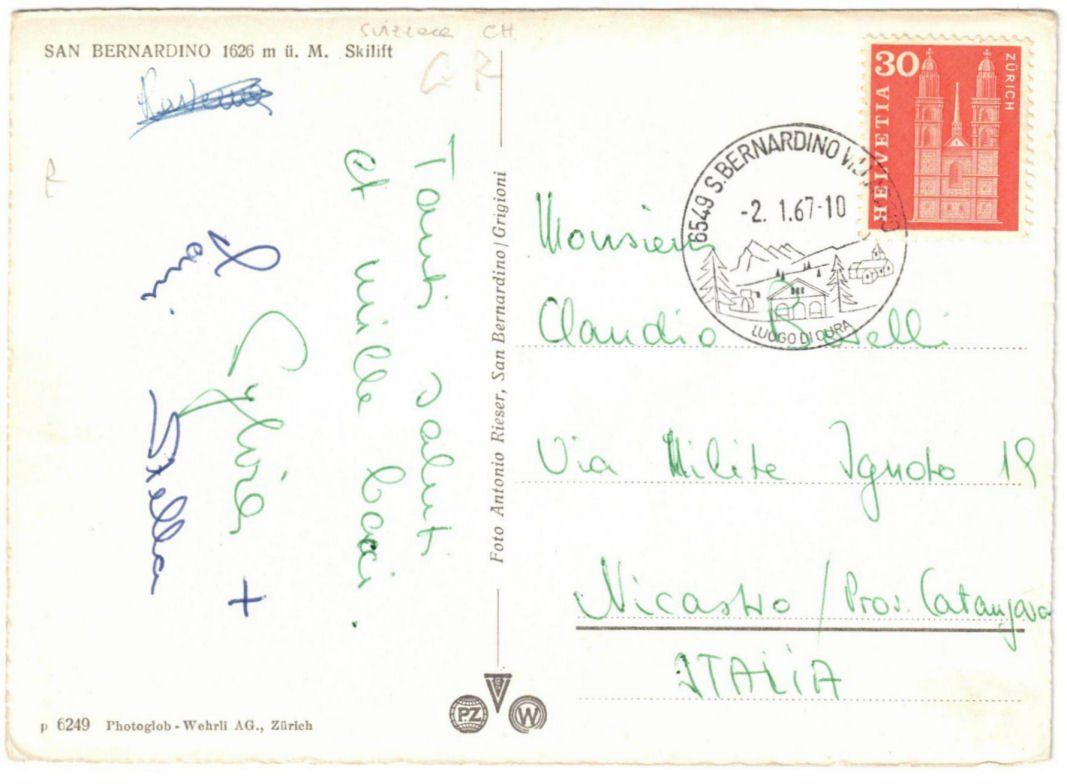 Svizzera CH
SAN BERNARDINO 1626 m ü. M. Skilift
GR
R
Tanti saluti
et mille baci.
Sylvia +
Stella
Foto Antonio Rieser, San Bernardino/Grigioni
30
HELVETIA
ZÜRICH
6549 S. BERNARDINO
-2. 1.67-10
LUOGO DI CURA
Monsieur
Claudio
Via Milite Ignoto 19
Nicastro / Prov. Catanzaro
ITALIA
PZ
W
p 6249 Photoglob-Wehrli AG., Zürich